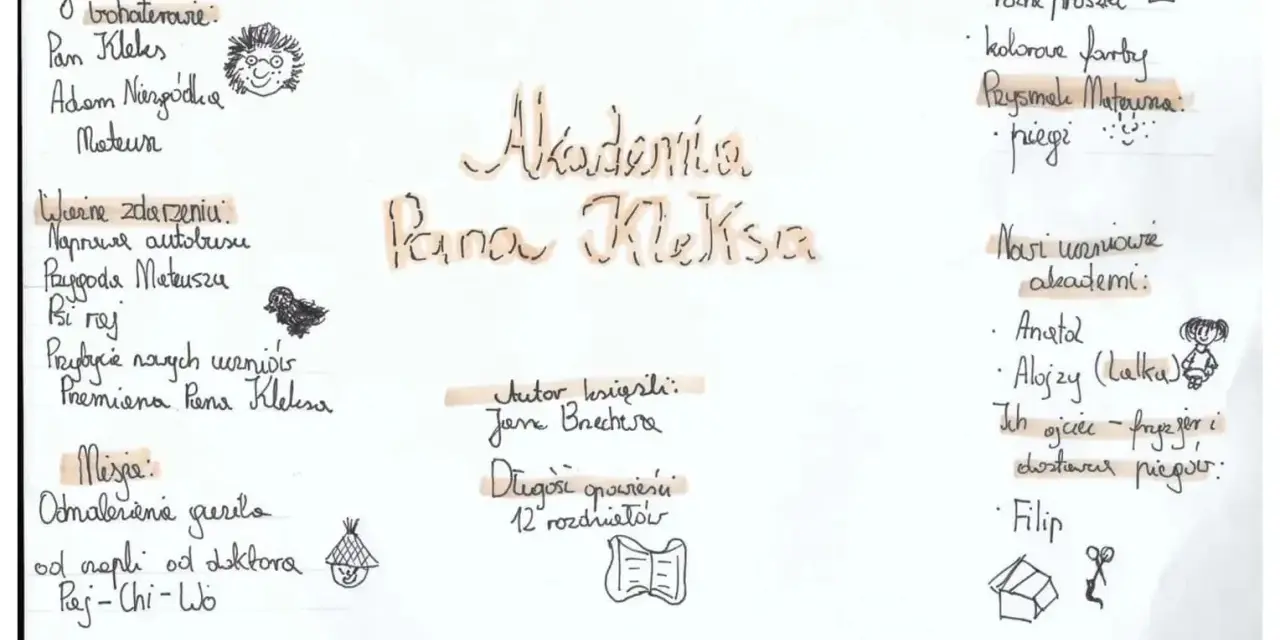 O bohaterowie:
Pan Kleks
Adam Niezgódka
Mateusz
Ważne zdarzenia:
Naprawa autobusu
Przygoda Mateusza
Psi raj
Przybycie nowych uczniów
Przemiana Pana Kleksa
Misja:
Odnalezienie guzika
od czapki od doktora
Paj-Chi-Wo
Akademia
Pana Kleksa
Autor książki:
Jan Brzechwa
Długość opowieści
12 rozdziałów
kolorowe farby
Przysmak Mateusza:
· piegi
Nowi uczniowie
akademi:
· Anatol
· Alojzy (Lalka)
Ich ojciec – fryzjer i
dostawca piegów:
· Filip